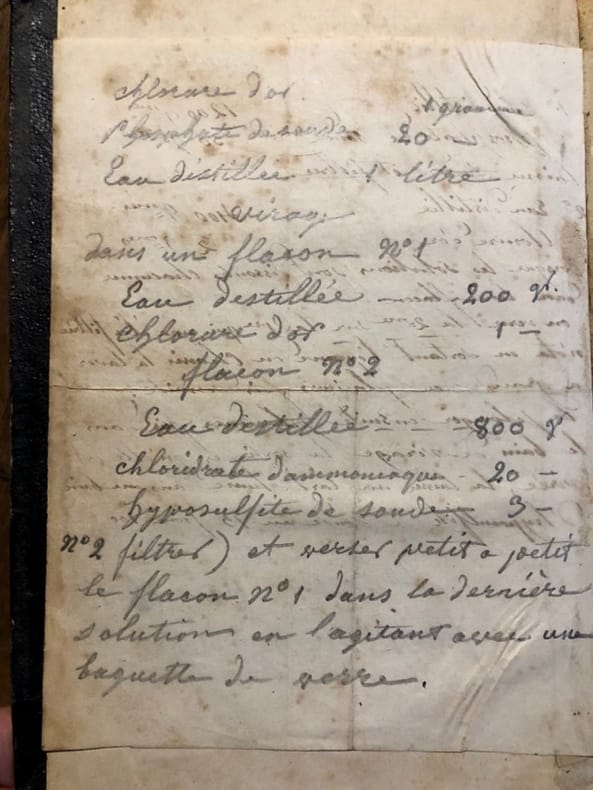 chlorure d'or 1 gramme
Phosphate de soude 20 —
Eau déstillée 1 litre
virage
dans un flacon n° 1
Eau destillée 200 gr.
chlorure d'or 1 —
flacon n° 2
Eau destillée 800 gr
chloridrate d'ammoniaque 20 —
hyposulfite de soude 3 —
n° 2 filtrer) et verser petit a petit
le flacon n° 1 dans la dernière
solution en l'agitant avec une
baguette de verre.